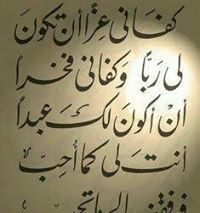 كفانى عِزًّا أن تكون
لى رَبًّا وكفانى فخراً
أن أكون لك عبداً
أنت لى كما أُحِبّ